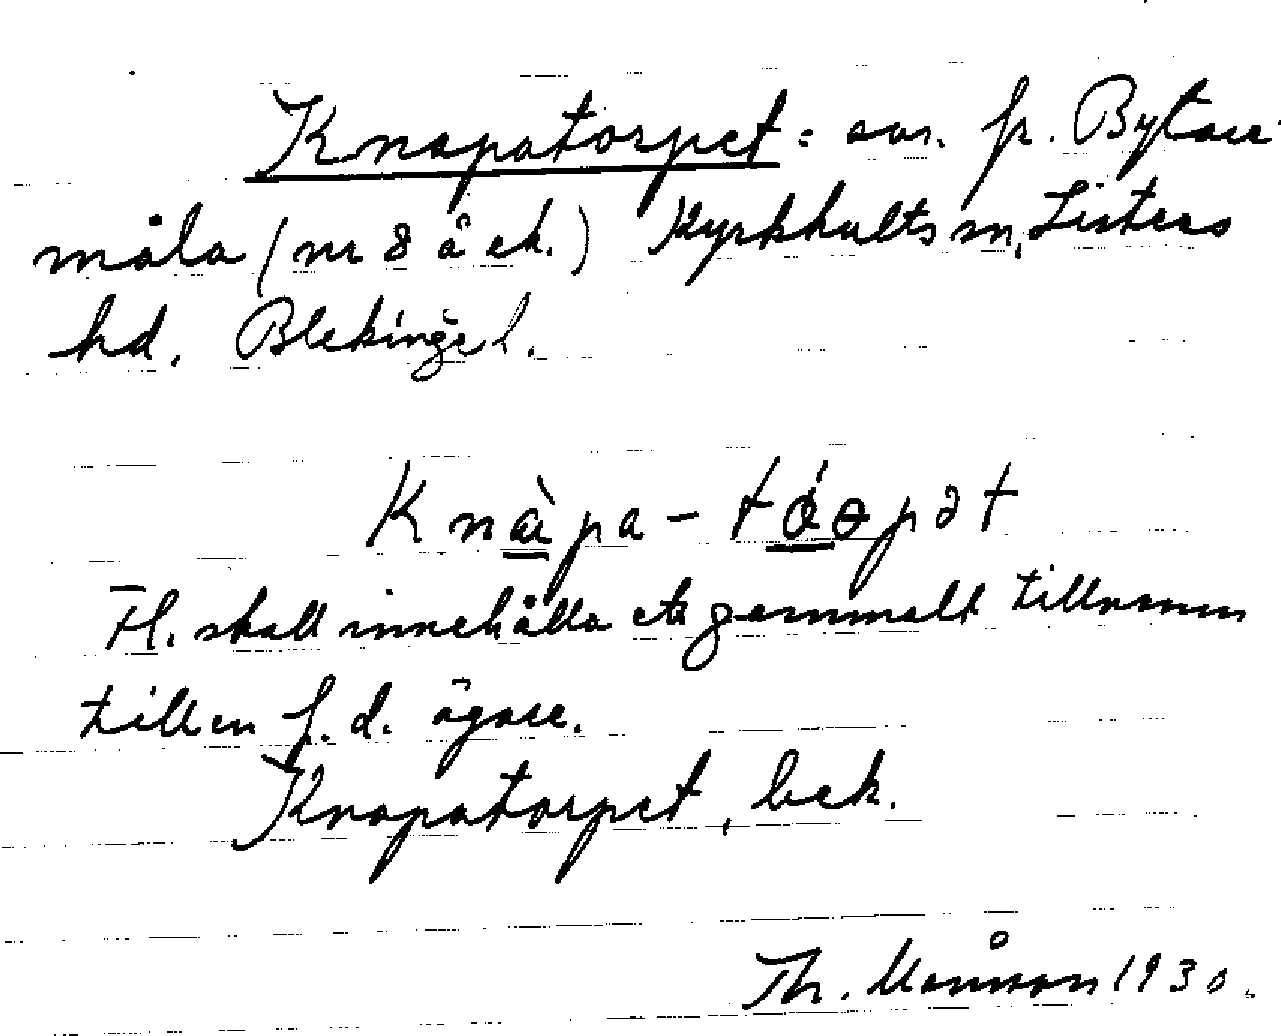 Knapatorpet = avs. fr. Bytare-
måla (nr 8 å ek.) Kyrkhults sn, Listers
hd. Blekinge l.
Knàpa-tóɵpət
Fl. skall innehålla ett gammalt tillnamn
till en f.d. ägare.
Knapatorpet, bek.
Th. Månsson 1930.